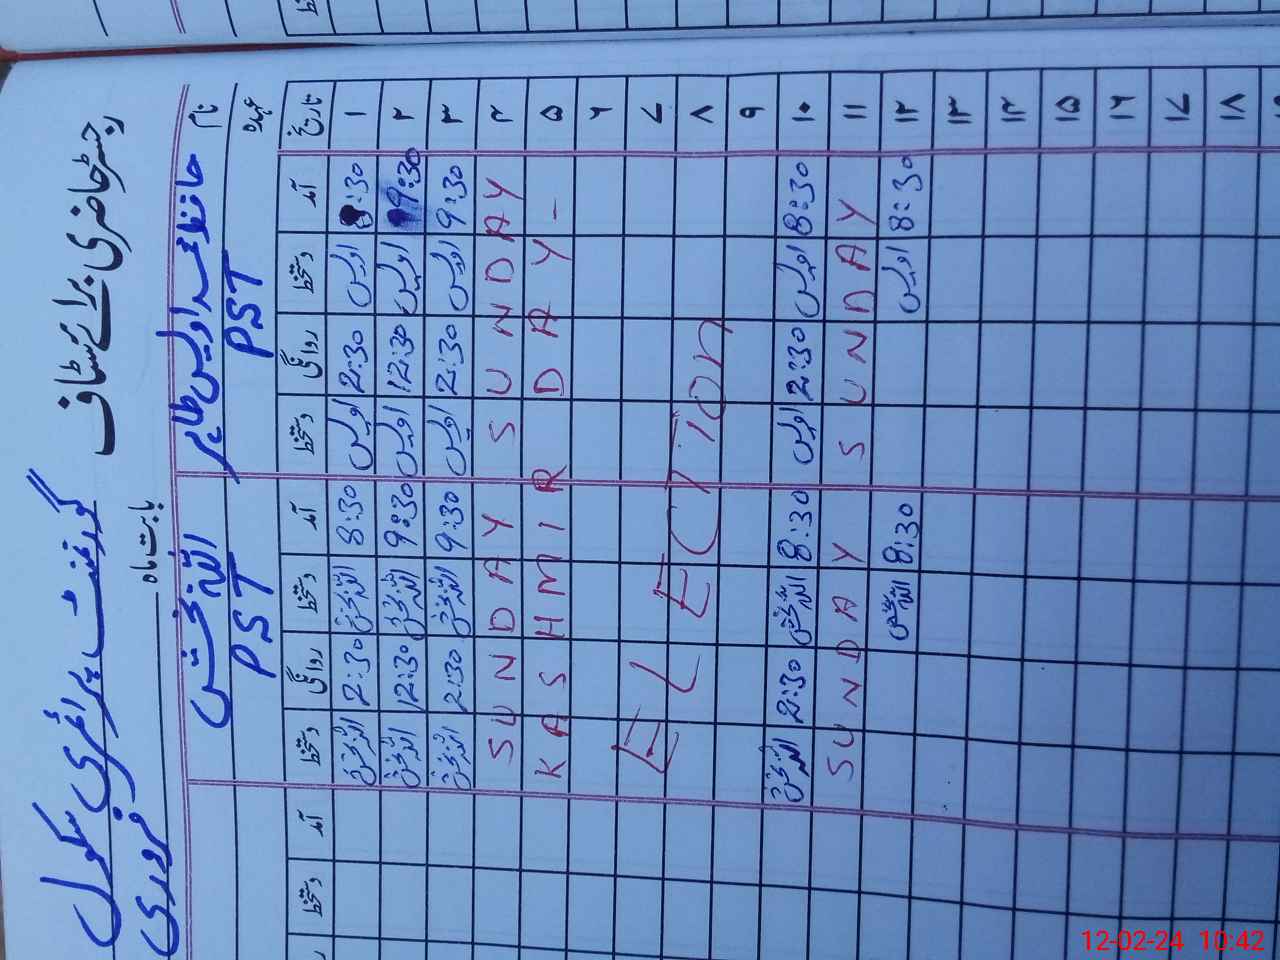 رجسٹر حاضری برائے سٹاف
گورنمنٹ پرائمری سکول
بابت ماہ فروری
نام حافظ محمد اویس طاہر اللہ بخش
عہدہ PST PST
تاریخ آمد دستخط روانگی دستخط آمد دستخط روانگی دستخط آمد دستخط
۱ 8:30 اویس 2:30 اویس 8:30 اللہ بخش 2:30 اللہ بخش
۲ 9:30 اویس 12:30 اویس 9:30 اللہ بخش 12:30 اللہ بخش
۳ 9:30 اویس 2:30 اویس 9:30 اللہ بخش 2:30 اللہ بخش
۴ SUNDAY SUNDAY
۵ KASHMIR DAY-
۶
۷
۸ ELECTION
۹
۱۰ 8:30 اویس 2:30 اویس 8:30 اللہ بخش 2:30 اللہ بخش
۱۱ SUNDAY SUNDAY
۱۲ 8:30 اویس 8:30 اللہ بخش
۱۳
۱۴
۱۵
۱۶
۱۷
۱۸
12-02-24 10:42